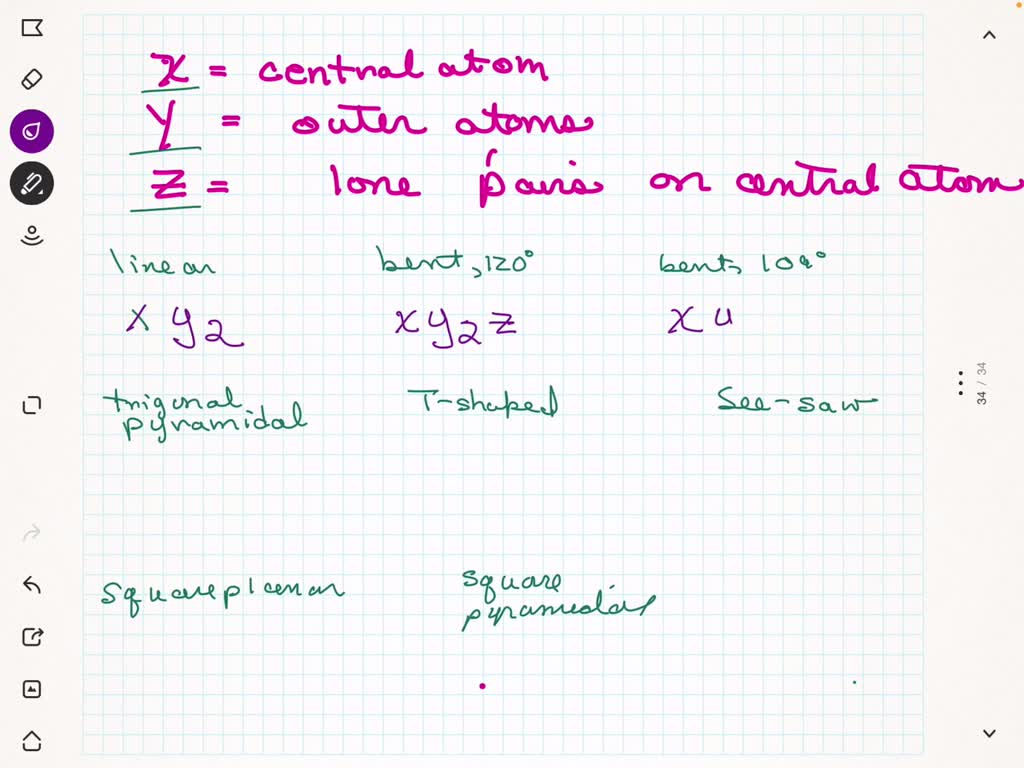 X = central atom
Y = outer atoms
Z = lone pairs on central atom
linear bent, 120° bent, 109°
X Y2 XY2Z XY
trigonal pyramidal T-shaped See-saw
square planar square pyramidal
34 / 34